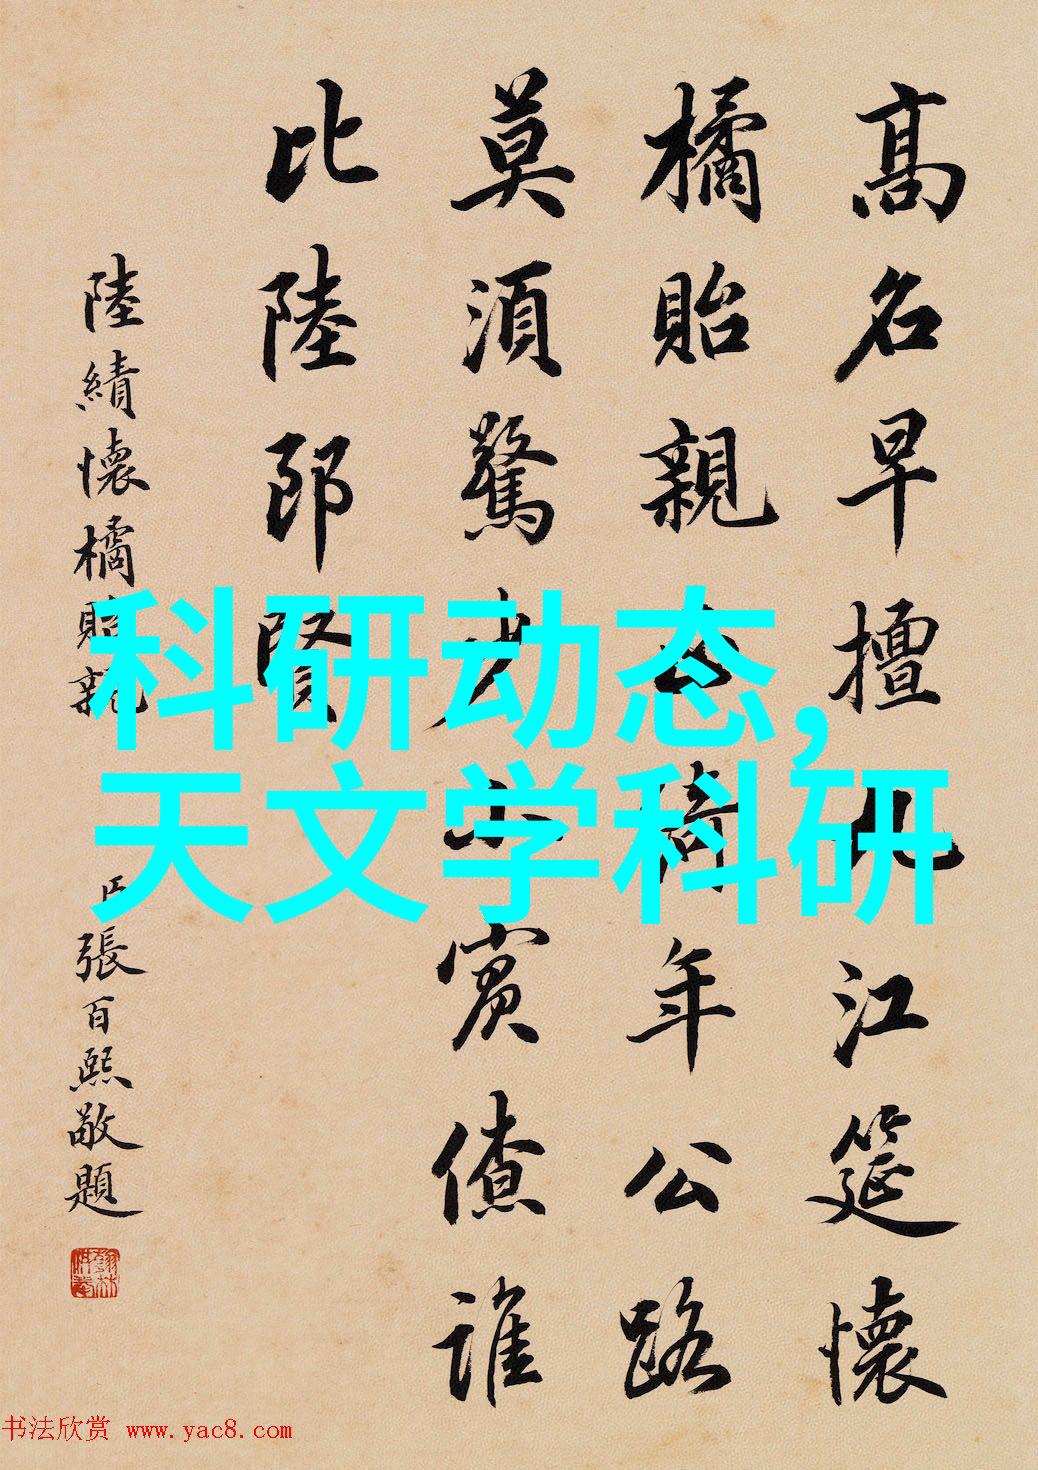 高名早擅九江筵懷
橘貽親年公路
莫須驚少小賓僚誰
比陸郎賢
陸績懷橘貽親
臣張百熙敬題
科研动态,
天文学科研
书法欣赏 www.yac8.com